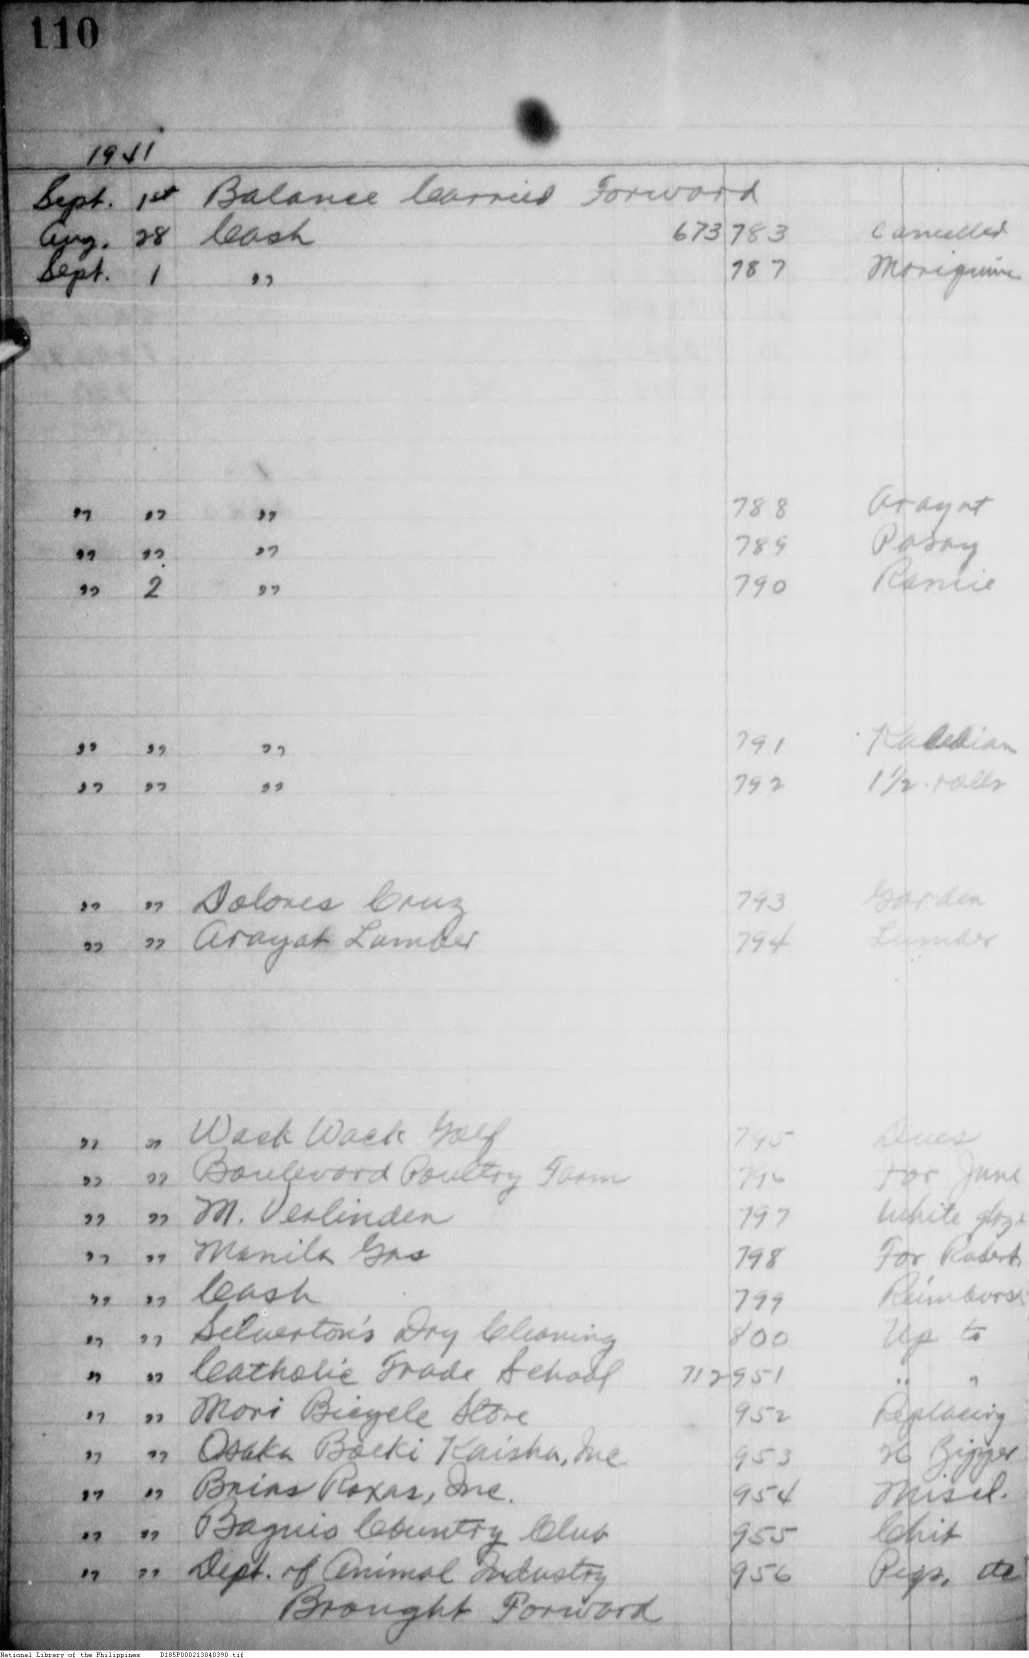 110
1941
Sept. 1st Balance Carried Forward
Aug. 28 Cash 673 783 Cancelled
Sept. 1 " 787
" " " 788 Arayat
" " " 789 Pasay
" 2 " 790
" " " 791
" " " 792 1 1/2 rolls
" " Dolores Cruz 793 Garden
" " Arayat Lumber 794 Lumber
" " Wack Wack Golf 795 Dues
" " Boulevard Poultry Farm 796 For June
" " M. Verlinden 797 White
" " Manila Gas 798 For Robert
" " Cash 799 Reimburs
" " Silverton's Dry Cleaning 800 Up to
" " Catholic Trade School 712 951 " "
" " Mori Bicycle Store 952 Replacing
" " Osaka Boeki Kaisha, Inc 953 Zipper
" " Brias Roxas, Inc. 954 Miscl.
" " Baguio Country Club 955 Chit
" " Dept. of Animal Industry 956 Pigs, etc
Brought Forward
National Library of the Philippines D185P000213040390.tif